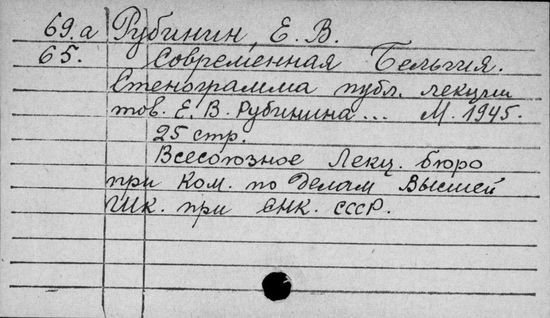 69.а Рубинин, Е. В.
65. Современная Бельгия.
Стенограмма публ. лекции
тов. Е. В. Рубинина... М. 1945.
25 стр.
Всесоюзное Лекц. бюро
при Ком. по делам Высшей
шк. при СНК. СССР.